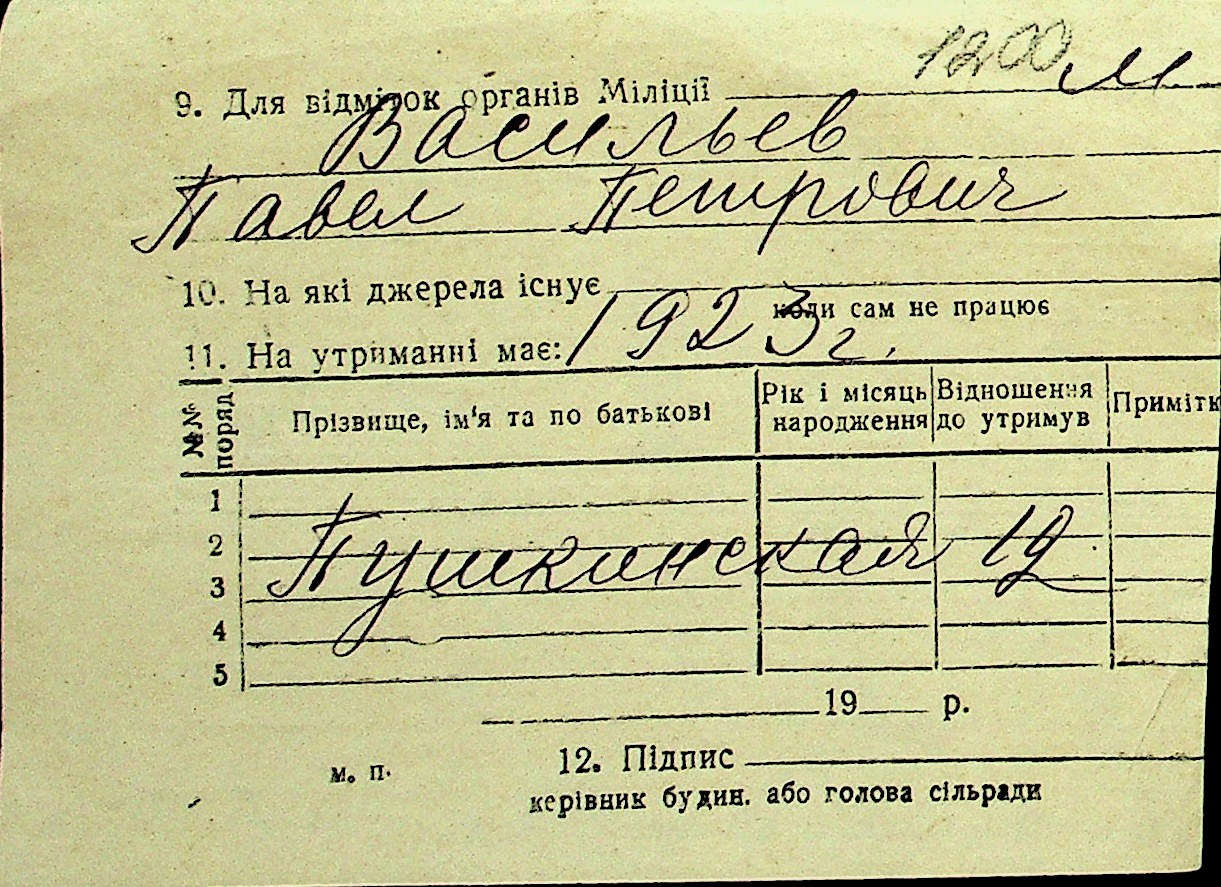 1200 м
9. Для відміток органів Міліції
Васильев
Павел Петрович
10. На які джерела існує
коли сам не працює
1923 г.
11. На утриманні має:
№№ поряд Прізвище, ім'я та по батькові Рік і місяць народження Відношення до утримув Примітк
1
2
Пушкинская 19
3
4
5
19 р.
м. п. 12. Підпис
керівник будин. або голова сільради